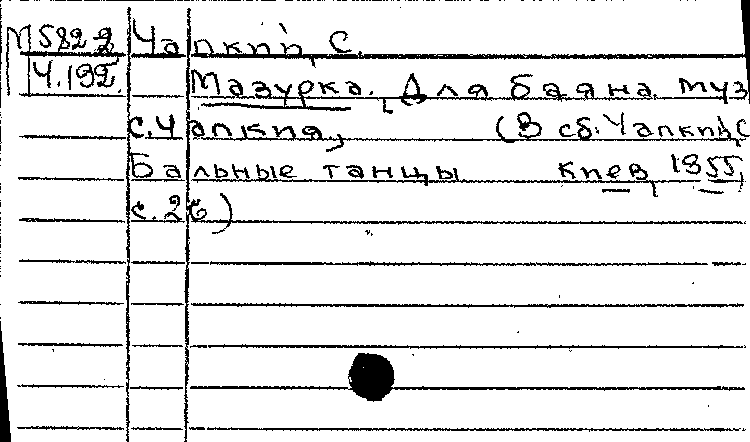 М582.2 Чапкий, С.
Ч.192. Мазурка. Для баяна. муз
С. Чапкия, (В сб: Чапкий, С
Бальные танцы Киев, 1955,
с. 26)